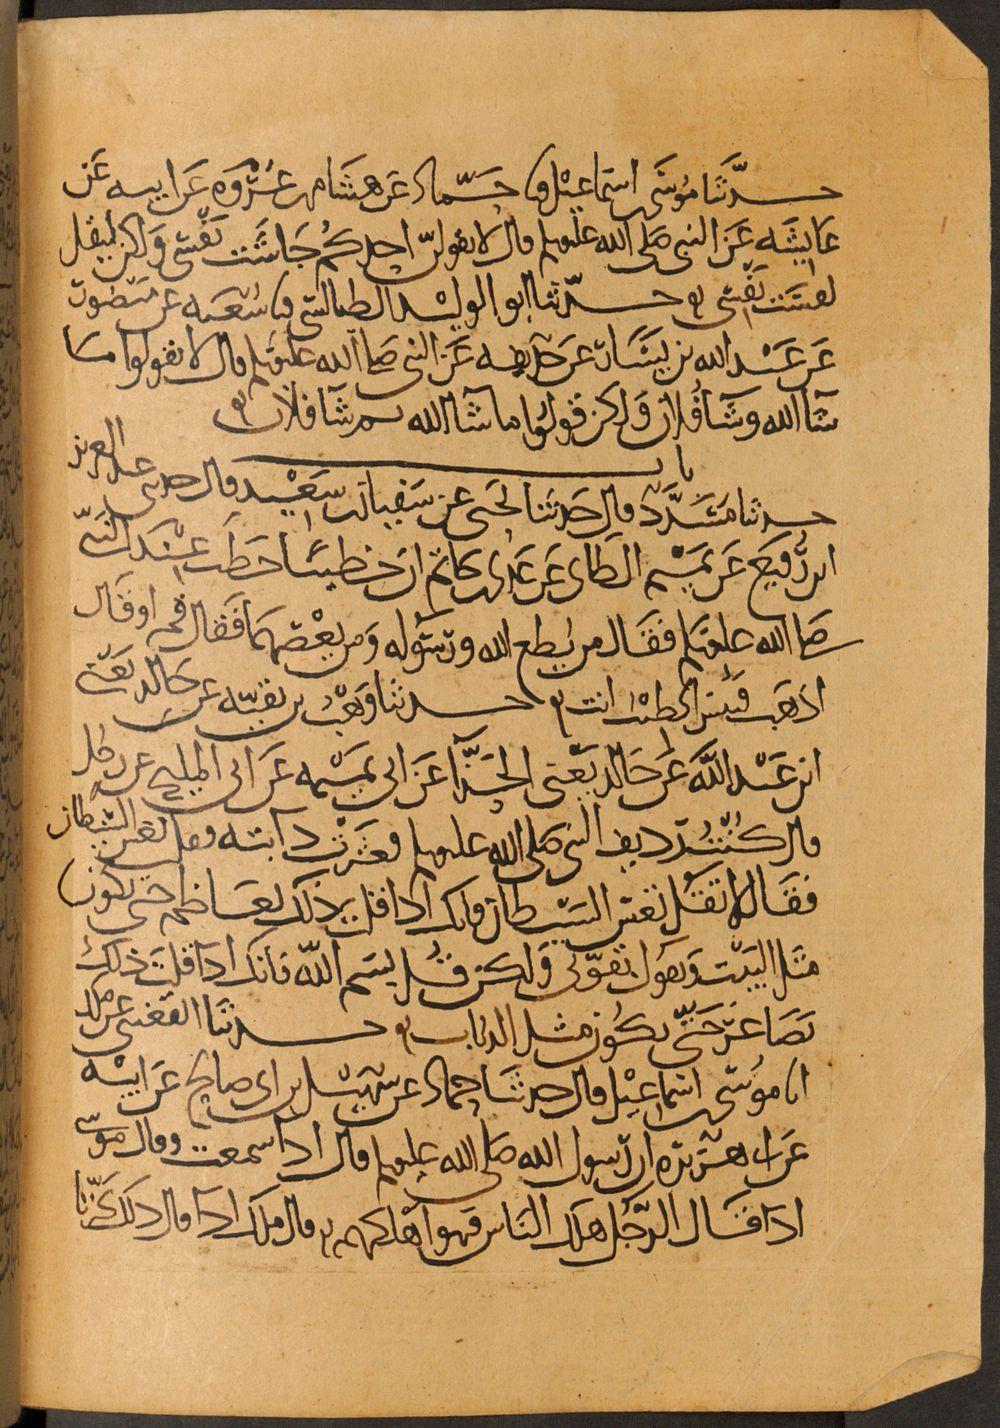 حدثنا موسى بن اسماعيل نا حماد عن هشام بن عروه عن ابيه عن
عايشه عن النبي صلى الله عليه وسلم قال لا يقولن احدكم جاشت نفسي ولكن ليقل
لقست نفسي حدثنا ابو الوليد الطيالسي نا شعبه عن منصور
عن عبد الله بن يسار عن حذيفه عن النبي صلى الله عليه وسلم قال لا تقولوا ما
شا الله وشا فلان ولكن قولوا ما شا الله ثم شا فلان
باب
حدثنا مسدد قال حدثنا يحيى عن سفيان بن سعيد قال حدثني عبد العزيز
ابن رفيع عن تميم الطاي عن عدي بن حاتم ان خطيبا خطب عند النبي
صلى الله عليه وسلم فقال من يطع الله ورسوله ومن يعصهما فقال قم او قال
اذهب فبئس الخطيب انت حدثنا وهب بن بقيه عن خالد يعني
ابن عبد الله عن خالد يعني الحذا عن ابي تميمه عن ابي المليح عن رجل
قال كنت رديف النبي صلى الله عليه وسلم فعثرت دابته فقلت تعس الشيطان
فقال لا تقل تعس الشيطان فانك اذا قلت ذلك تعاظم حتى يكون
مثل البيت ويقول بقوتي ولكن قل بسم الله فانك اذا قلت ذلك
تصاغر حتى يكون مثل الذباب حدثنا القعنبي عن ملك
نا موسى بن اسماعيل قال حدثنا حماد عن سهيل بن ابي صالح عن ابيه
عن ابي هريره ان رسول الله صلى الله عليه وسلم قال اذا سمعت وقال موسى
اذا قال الرجل هلك الناس فهو اهلكهم قال ملك اذا قال ذلك تحزنا